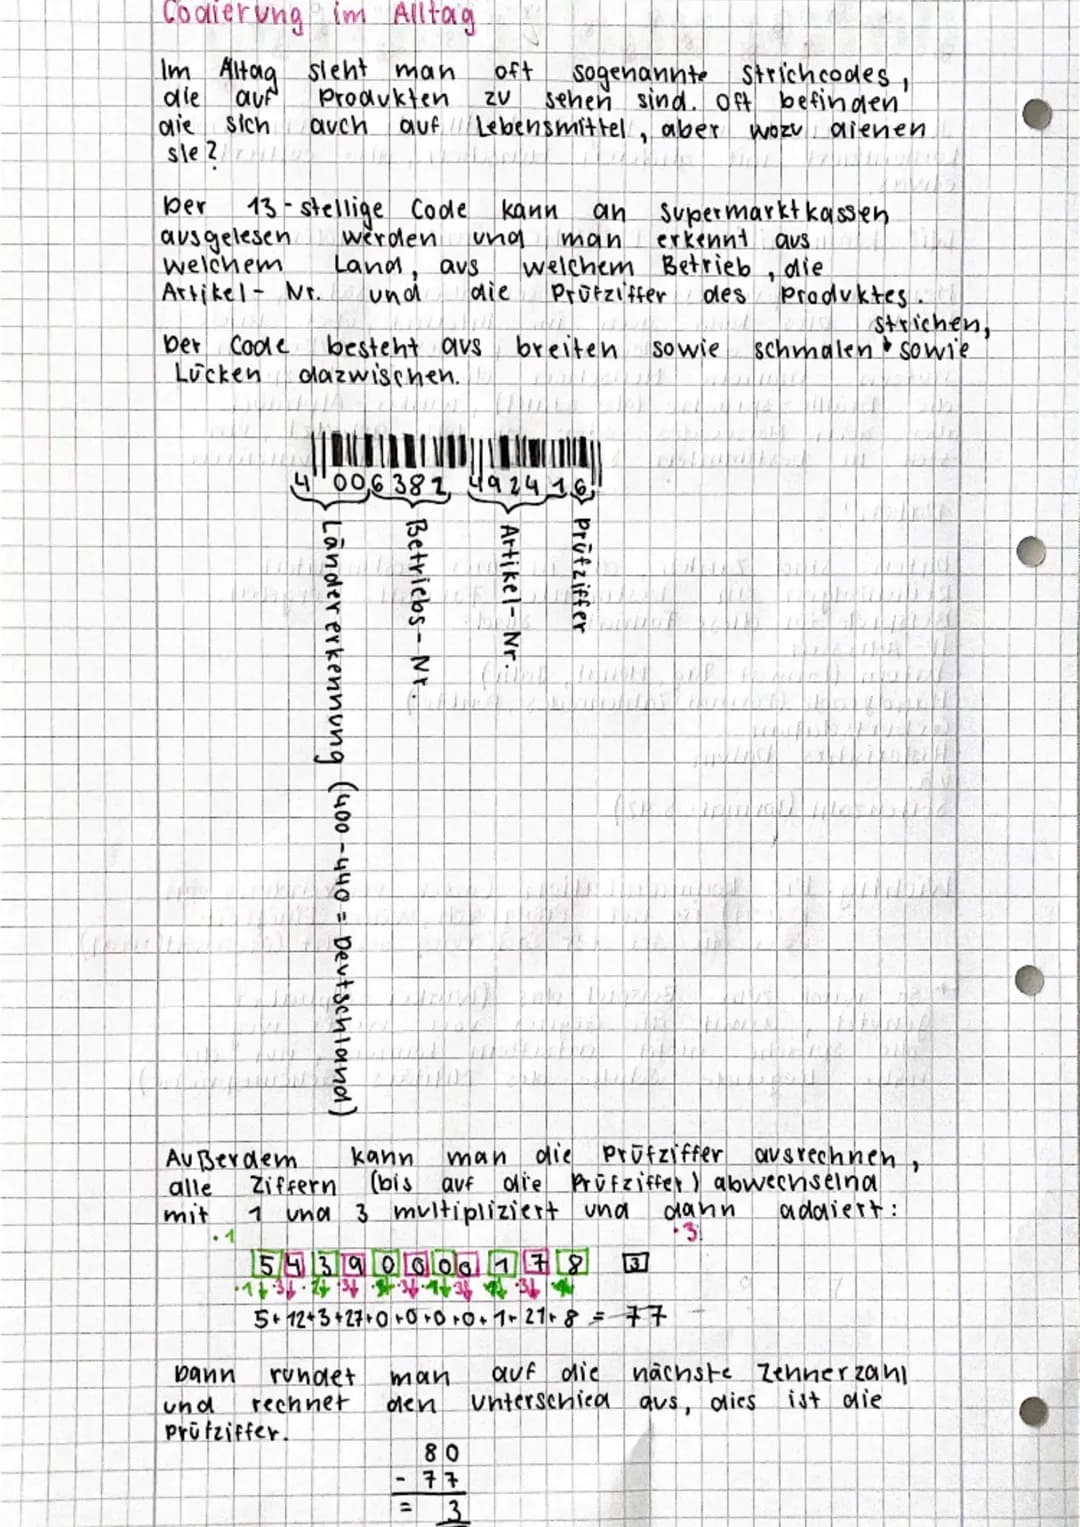 Codierung im Alltag
Im Alltag sieht man oft sogenannte Strichcodes,
die auf Produkten zu sehen sind. Oft befinden
die sich auch auf Lebensmittel, aber wozu dienen
sie?
Der 13-stellige Code kann an Supermarktkassen
ausgelesen werden und man erkennt aus
welchem Land, aus welchem Betrieb, die
Artikel-Nr. und die Prüfziffer des Produktes.
Strichen,
Der Code besteht aus breiten sowie schmalen sowie
Lücken dazwischen.
4 006382 492416
Ländererkennung (400-440 = Deutschland)
Betriebs-Nr.
Artikel-Nr.
Prüfziffer
Außerdem kann man die Prüfziffer ausrechnen,
alle Ziffern (bis auf die Prüfziffer) abwechselnd
mit 1 und 3 multipliziert und dann addiert:
·1 ·3
5 4 3 9 0 0 0 0 1 7 8 3
5+12+3+27+0+0+0+0+1+21+8 = 77
Dann rundet man auf die nächste Zehnerzahl
und rechnet den Unterschied aus, dies ist die
Prüfziffer.
80
- 77
= 3